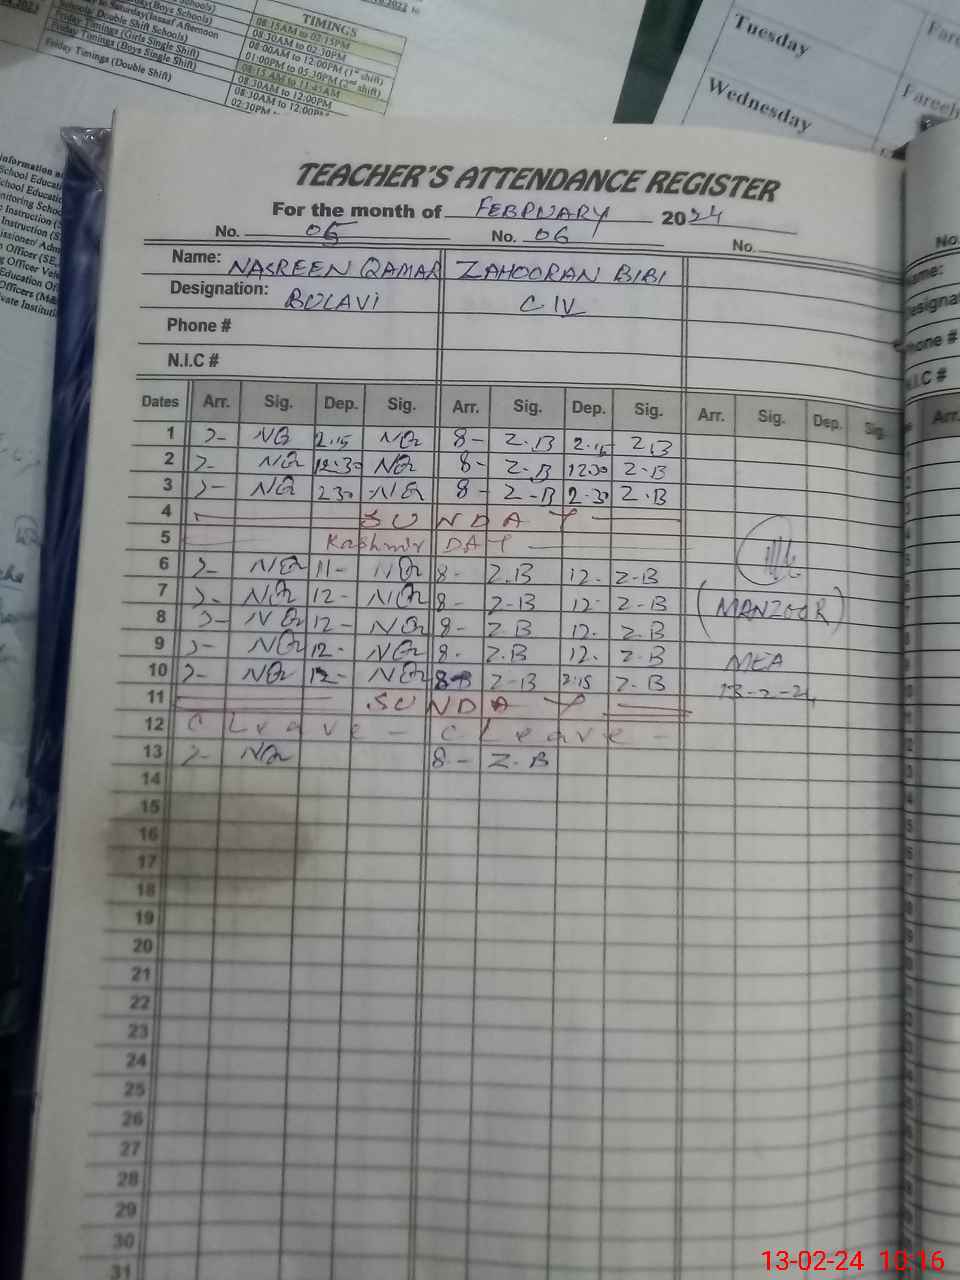 TIMINGS
08:15AM to 02:15PM
08:30AM to 02:30PM
08:00AM to 12:00PM (1st shift)
01:00PM to 05:30PM (2nd shift)
08:15 AM to 11:45AM
08:30AM to 12:00PM
Friday Timings (Girls Single Shift)
Friday Timings (Boys Single Shift)
Friday Timings (Double Shift)
Tuesday
Wednesday
TEACHER'S ATTENDANCE REGISTER
For the month of FEBRUARY 2024
No. 05 No. 06 No.
Name: NASREEN QAMAR ZAHOORAN BIBI
Designation: BULAVI C IV
Phone #
N.I.C #
Dates Arr. Sig. Dep. Sig. Arr. Sig. Dep. Sig. Arr. Sig. Dep. Sig.
1 NQ 2.15 NQ 8- Z.B 2.15 Z.B
2 NQ 12.30 NQ 8- Z.B 12.30 Z-B
3 NQ 2.30 NQ 8- Z-B 2.30 Z.B
4 SUNDAY
5 Kashmir DAY
6 NQ 11- NQ 8- Z.B 12. Z-B
7 NQ 12- NQ 8- Z-B 12- Z-B
8 NQ 12- NQ 8- Z.B 12. Z.B
9 NQ 12- NQ 8- Z.B 12. Z.B
10 NQ 12- NQ 8- Z-B 2.15 Z.B
11 SUNDAY
12 C Leave - C Leave -
13 NQ 8- Z.B
(MANZOOR)
MEA
13-2-24
14
15
16
17
18
19
20
21
22
23
24
25
26
27
28
29
30
31
13-02-24 10:16